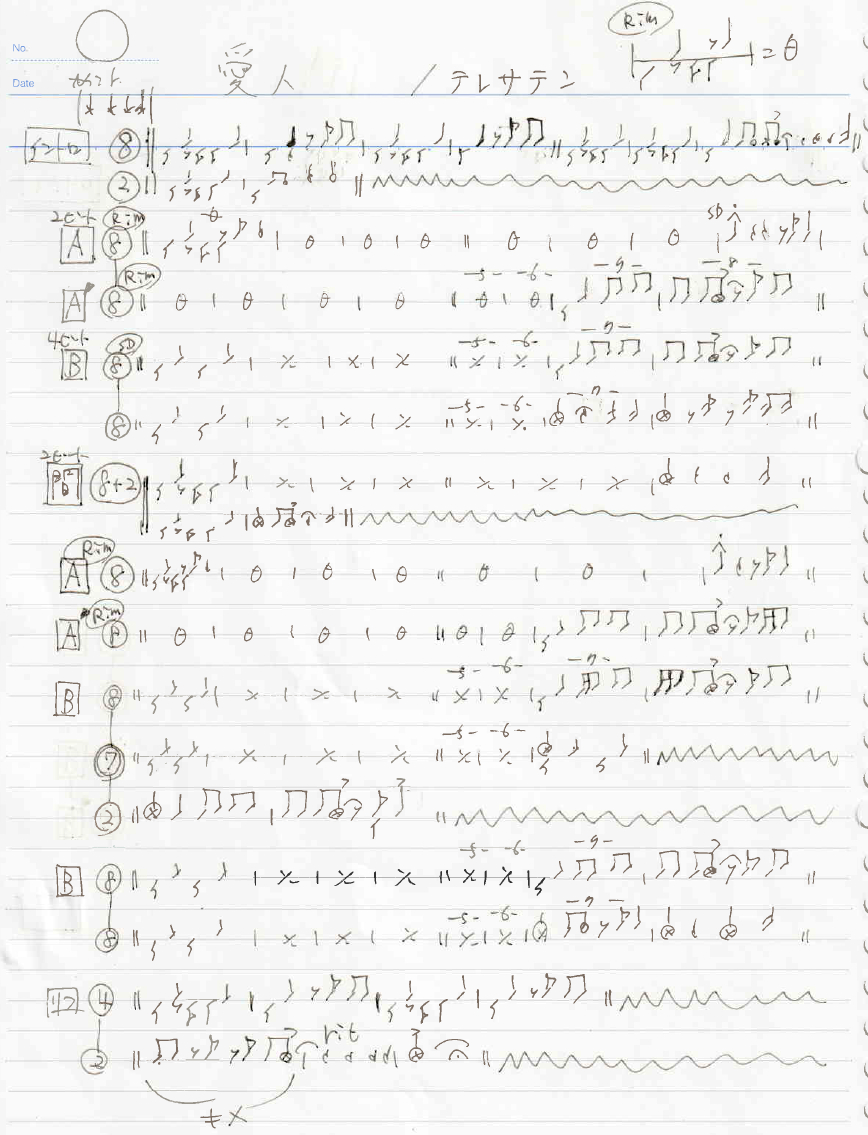 No.
Date
Rim
= θ
愛人 / テレサテン
イントロ 8
2
2ビート Rim
A 8 θ
θ θ θ θ θ θ SD
Rim
A' 8 θ θ θ θ -5- -6- -7- -8-
θ θ
4ビート SD
B 8 -5- -6- -7-
8 -5- -6- -7-
2ビート
8+2
Rim
A 8 θ θ θ θ θ
Rim
A' 8 θ θ θ θ θ θ
B 8 -5- -6- -7-
7 -5- -6-
2
B 8 -5- -6- -7-
8 -5- -6- -7-
4
rit
2
キメ